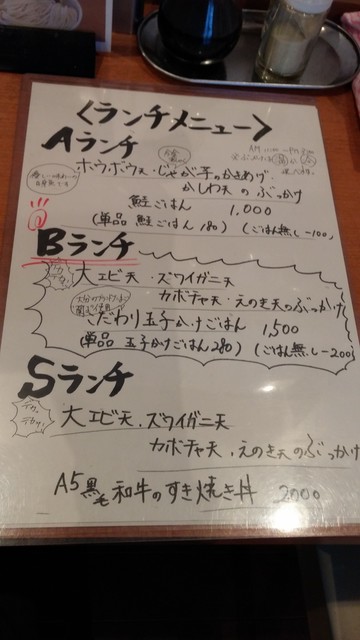 <ランチメニュー>
Aランチ
AM 11:00 ~ PM
ホウボウ天・じゃが芋のかきあげ
かしわ天のぶっかけ
鮭ごはん 1,000
(単品 鮭ごはん 180) (ごはん無し-100)
Bランチ
大エビ天・ズワイガニ天
カボチャ天・えのき天のぶっかけ
こだわり玉子かけごはん 1,500
(単品 玉子かけごはん280) (ごはん無し-200)
Sランチ
デカッ
デカッ
大エビ天・ズワイガニ天
カボチャ天・えのき天のぶっかけ
A5黒毛和牛のすき焼き丼 2000